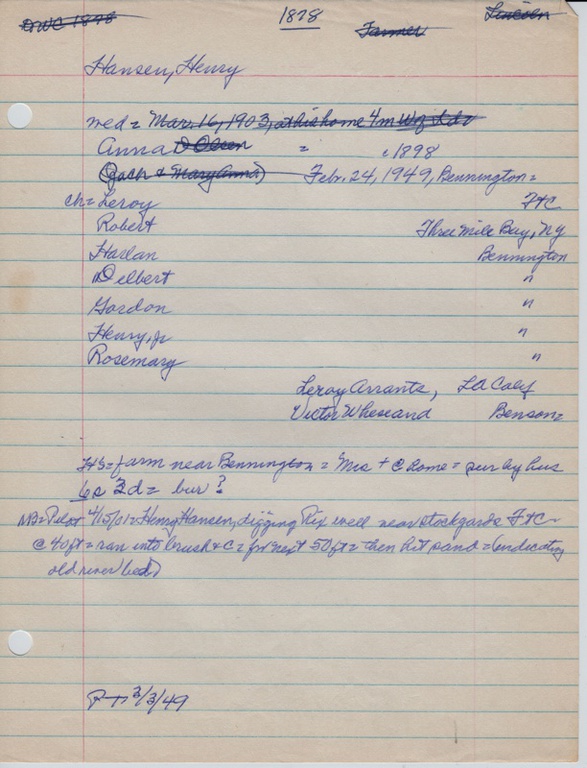 DWC 1898 1898 Farmer Lincoln
Hansen, Henry
med = Mar. 16, 1903, at his home 4m W
Anna D Olsen = c1898
(Jach & Mary Anna) Febr. 24, 1949, Bennington =
ch = Leroy FtC
Robert Three Mile Bay, NY
Harlan Bennington
Delbert "
Gordon "
Henry, jr "
Rosemary "
Leroy Arrants, LA Calif
Victor Benson =
H's = farm near Bennington = Mrs + C home = sur by hus
6s 2d = bur?
NB = Pilot 4/15/01 = Henry Hansen, digging well near stockyards FtC
@ 40 ft = ran into brush & C = for next 50 ft = then hit sand = (indicating
old river bed)
3/3/49